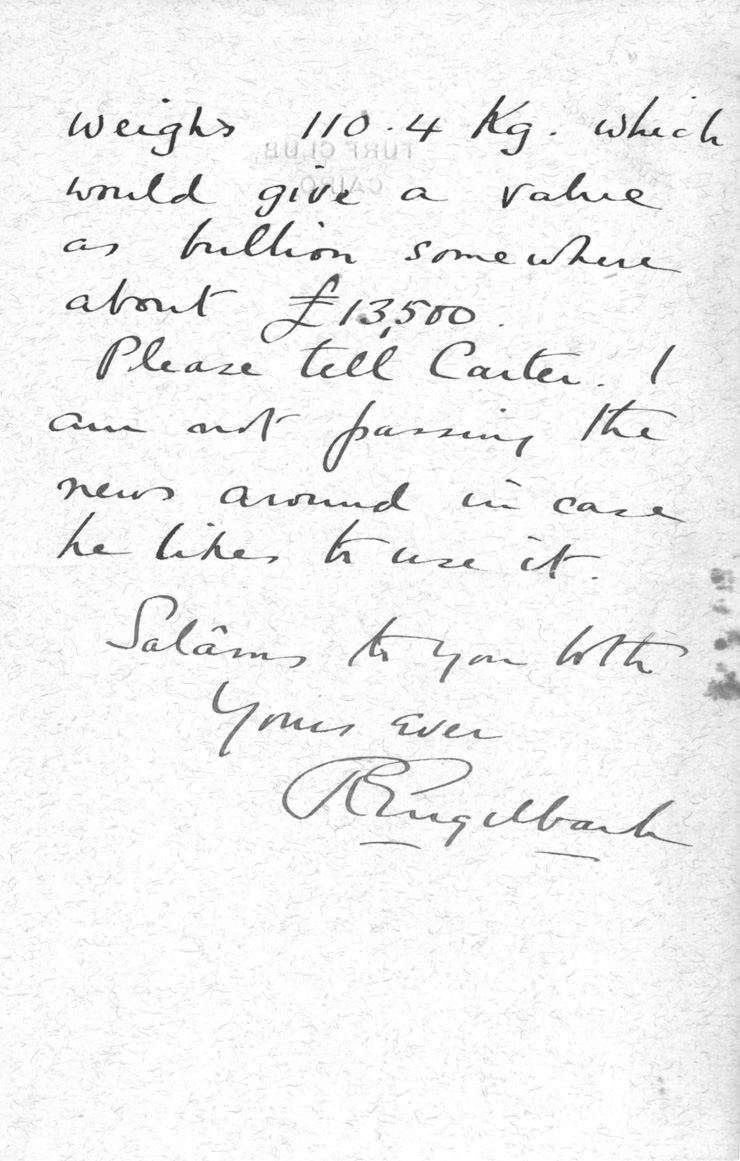 weighs 110.4 Kg. which
TURF CLUB,
CAIRO.
would give a value
as bullion somewhere
about £13,500.
Please tell Carter. I
am not passing the
news around in case
he likes to use it.
Salâms to you both
Yours ever
REngelbach